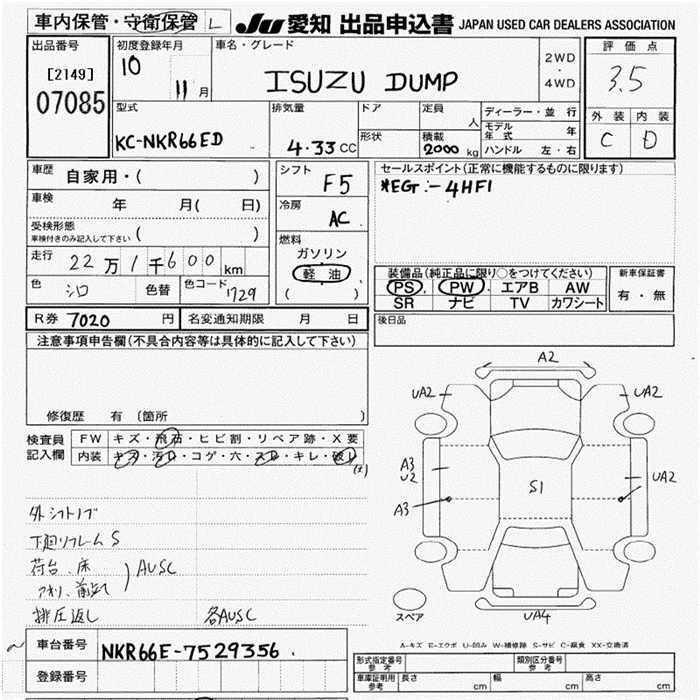 車内保管・守衛保管 L
JU 愛知 出品申込書 JAPAN USED CAR DEALERS ASSOCIATION
出品番号
[2149]
07085
初度登録年月
10
11 月
車名・グレード
ISUZU DUMP
2WD
・
4WD
評価点
3.5
外装 内装
C D
型式
KC-NKR66ED
排気量
4.33 CC
ドア
形状
定員
人
積載
2000 kg
ディーラー・並行
モデル年式 年
ハンドル 左・右
車歴 自家用・( )
車検 年 月( 日)
受検形態
車検付きのみ記入して下さい ( )
走行 22万1千600 km
色 シロ 色替 色コード 1729
シフト
F5
冷房
AC
燃料
ガソリン
軽油
( )
セールスポイント(正常に機能するものに限ります)
*EGT:-4HF1
装備品(純正品に限り○をつけてください)
PS. PW. エアB AW
SR ナビ TV カワシート
新車保証書
有・無
R券 7020 円 名変通知期限 月 日
後日品
注意事項申告欄(不具合内容等は具体的に記入して下さい)
修復歴 有 (箇所 )
検査員
記入欄
FW キズ・飛石・ヒビ割・リペア跡・X要
内装 キズ・汚レ・コゲ・穴・スレ・キレ・破レ
外シフトノブ
下廻リフレームS
荷台、床
AUSC
排圧返し 各AUSC
A2
UA2 UA2
A3
U2
S1
UA2
A3
UA4
スペア
A-キズ E-エクボ U-凹み W-補修跡 S-サビ C-腐食 XX-交換済
車台番号 NKR66E-7529356
登録番号
形式指定番号
参考
類別区分番号
参考
車庫証明用
参考
長さ cm 幅 cm 高さ cm